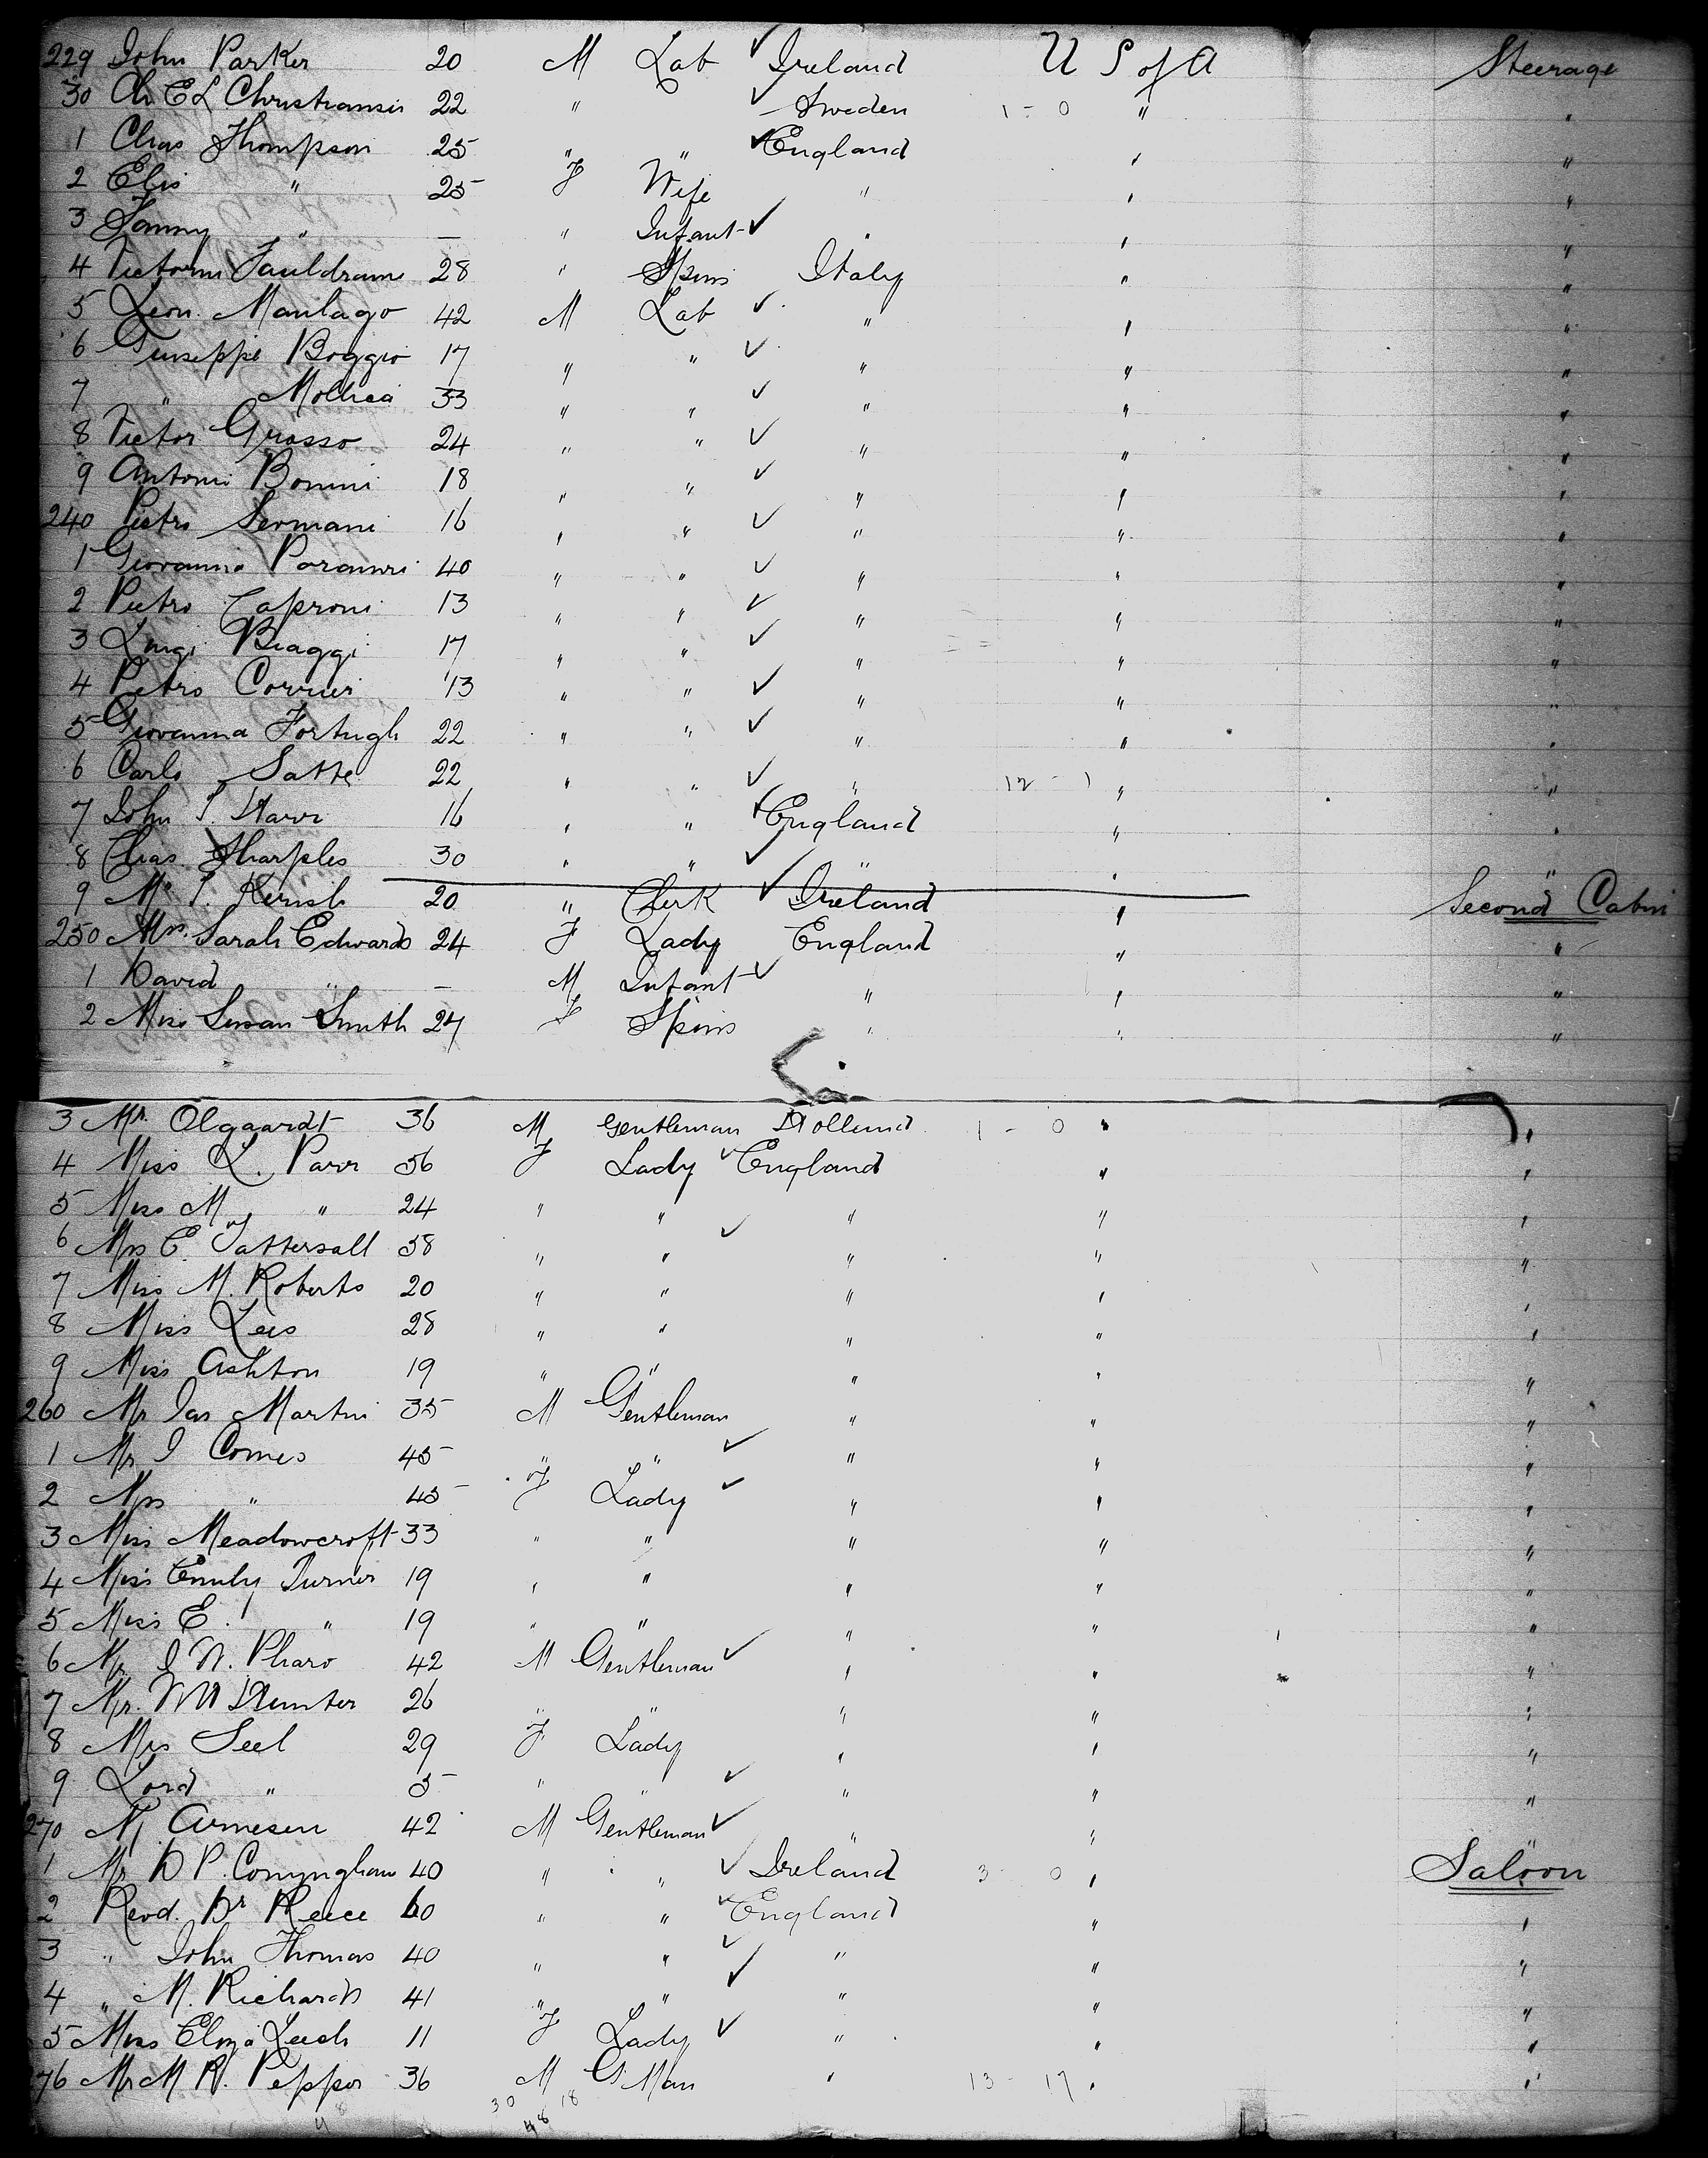 229 John Parker 20 M Lab ✓ Ireland U S of A Steerage
30 Ch. E L Christiansen 22 " ✓ Sweden 1 - 0 " "
1 Chas Thompson 25 " " ✓ England " "
2 Elis " 25 F Wife " " "
3 Fanny " — " Infant ✓ " " "
4 28 " Spins Italy " "
5 Leon. Manlago 42 M Lab ✓ " " "
6 Giuseppe Boggio 17 " " ✓ " " "
7 " 33 " " ✓ " " "
8 Victor Grosso 24 " " ✓ " " "
9 Antonio Bonini 18 " " ✓ " " "
240 Pietro Sermani 16 " " ✓ " " "
1 Giovanni 40 " " ✓ " " "
2 Pietro Caproni 13 " " ✓ " " "
3 Luigi Biaggi 17 " " ✓ " " "
4 Pietro 13 " " ✓ " " "
5 Giovanna Fortugh 22 " " ✓ " " "
6 Carlo Satte 22 " " ✓ " 12 - 1 " "
7 John T. Starr 16 " " ✓ England " "
8 Chas. Sharples 30 " " ✓ " " "
9 Mr. T. Kernish 20 " Clerk ✓ Ireland " Second Cabin
250 Mrs. Sarah Edwards 24 F Lady England " "
1 David " — M Infant ✓ " " "
2 Miss Susan Smith 27 F Spins " " "
3 Mr. Olgaardt 36 M Gentleman Holland 1 - 0 " "
4 Miss L. Parr 56 F Lady ✓ England " "
5 Miss M " 24 " " " " "
6 Mrs E. Tattersall 38 " " ✓ " " "
7 Miss M. Roberts 20 " " " " "
8 Miss Lees 28 " " " " "
9 Miss Ashton 19 " " " " "
260 Mr Jas Martin 35 M Gentleman " " "
1 Mr J Comes 45 " " ✓ " " "
2 Mrs " 45 F Lady ✓ " " "
3 Miss Meadowcroft 33 " " " " "
4 Miss Emily Turner 19 " " " " "
5 Miss E. " 19 " " " " "
6 Mr J W. Pharo 42 M Gentleman ✓ " " "
7 Mr. Wm Hunter 26 " " " " "
8 Mrs Seel 29 F Lady " " "
9 Lord " 5 " " ✓ " " "
270 Mr Arnesen 42 M Gentleman ✓ " " "
1 Mr D P. Conyngham 40 " " ✓ Ireland 3 - 0 " Saloon
2 Revd. Dr Reece 60 " " ✓ England " "
3 " John Thomas 40 " " ✓ " " "
4 " M. Richards 41 " " ✓ " " "
5 Miss Eliza Leech 11 F Lady ✓ " " "
76 Mr M R. Pepper 36 M G Man " 13 - 17 " "
30 18
48